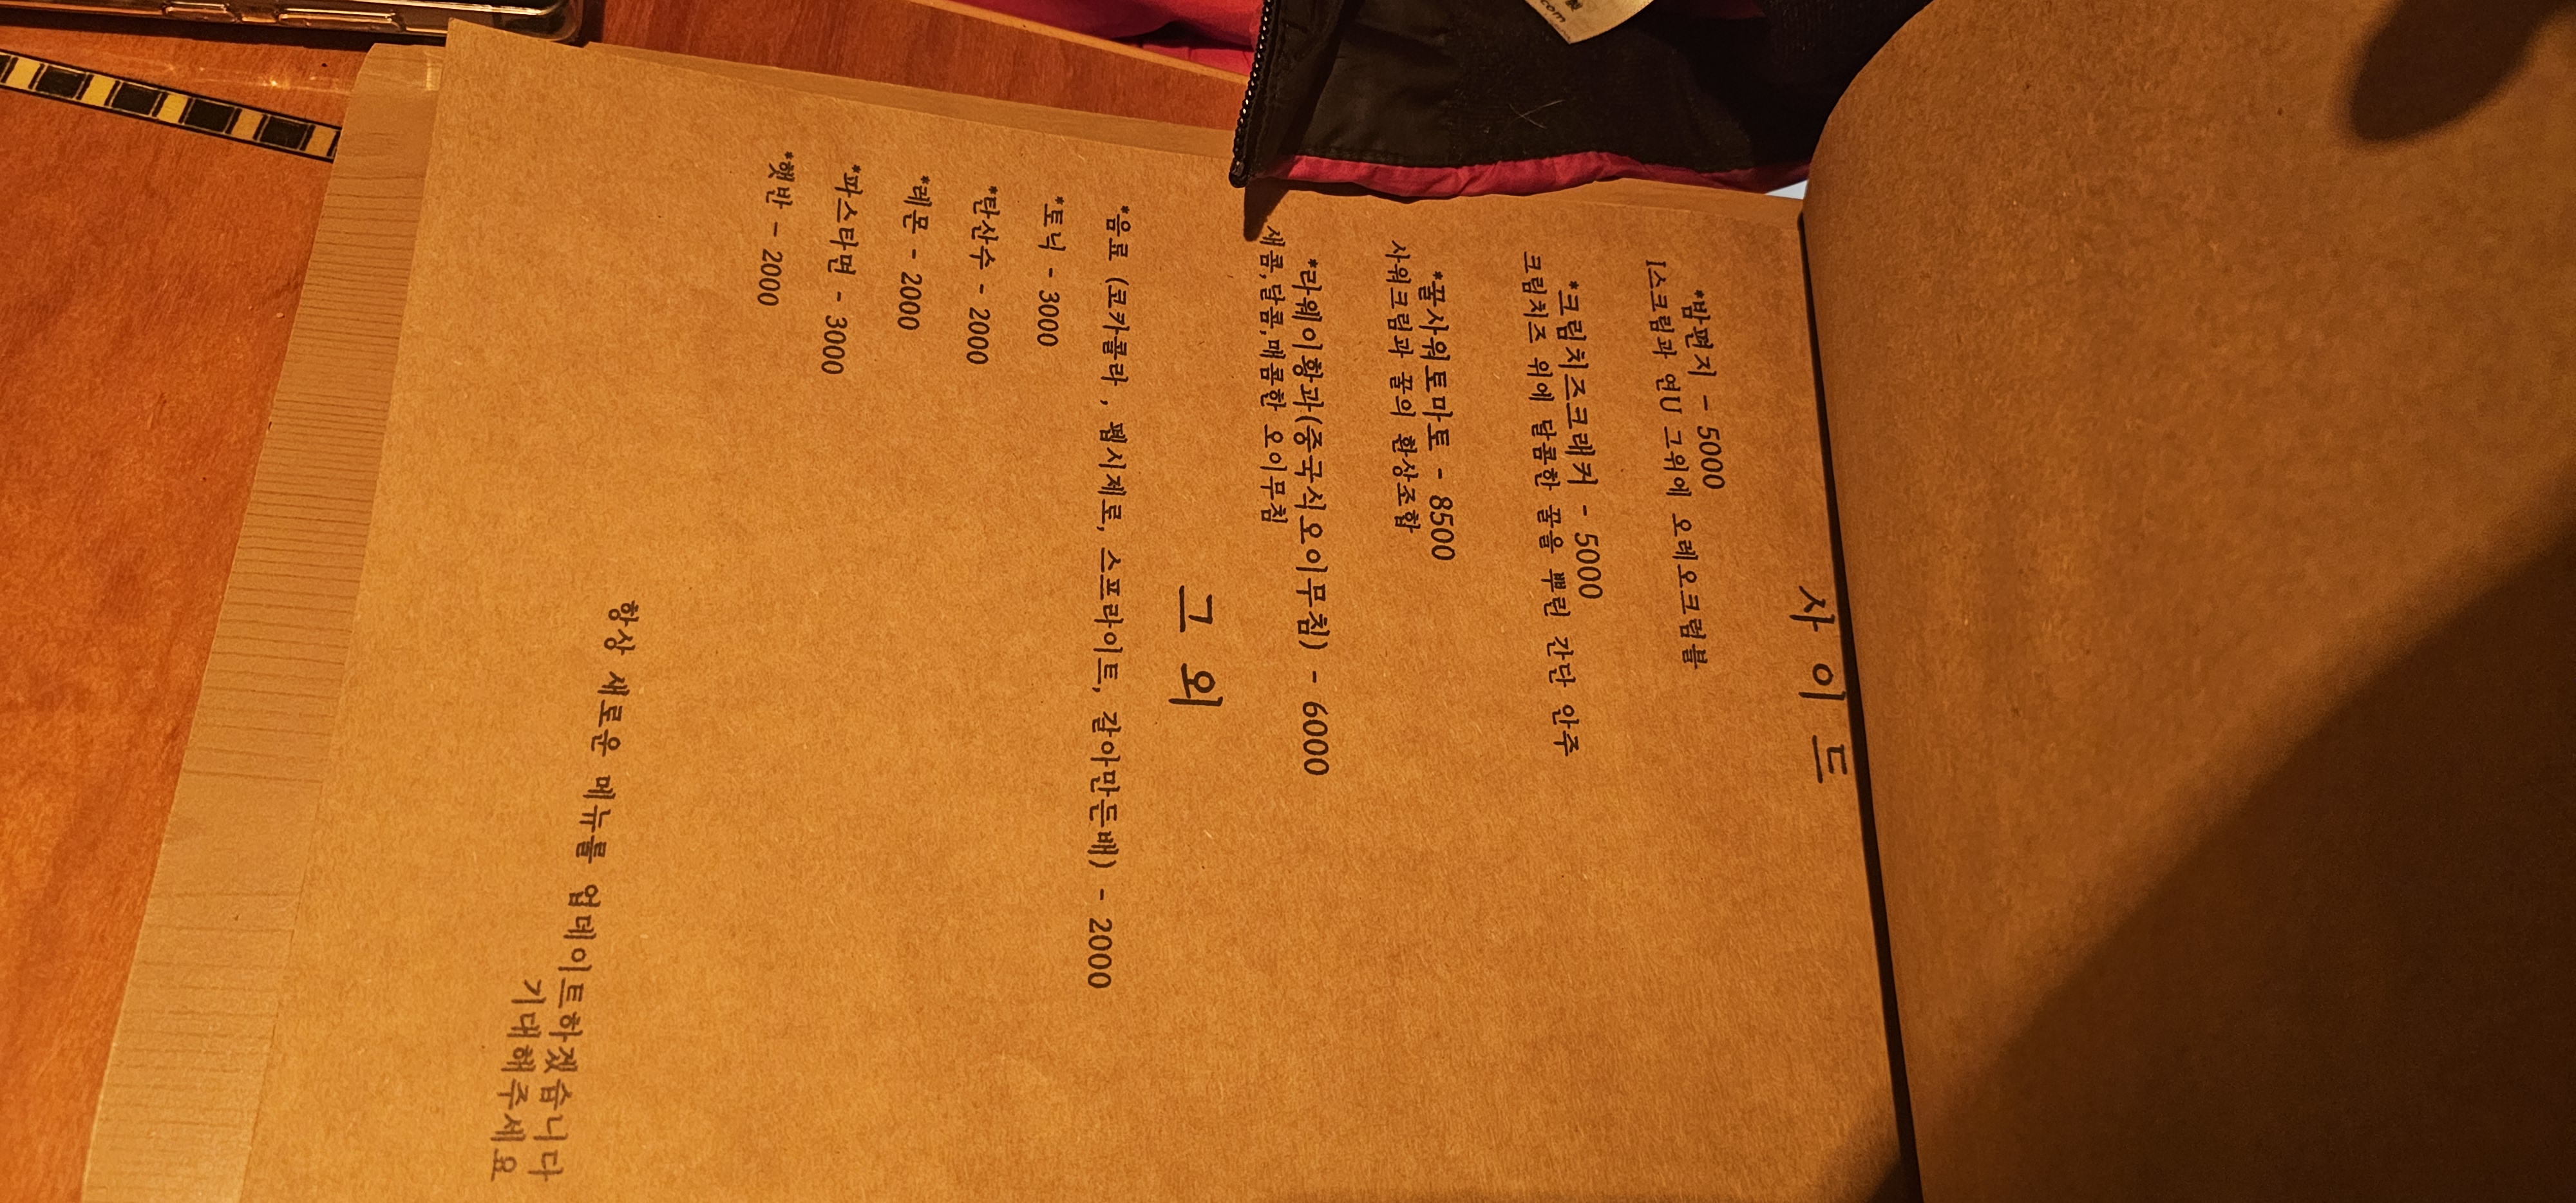 사 이 드
*밤편지 - 5000
I스크림과 연U 그위에 오레오크럼블
*크림치즈크래커 - 5000
크림치즈 위에 달콤한 꿀을 뿌린 간단 안주
*꿀사워토마토 - 8500
사워크림과 꿀의 환상조합
*라웨이황과(중국식오이무침) - 6000
새콤,달콤,매콤한 오이무침
그 외
*음료 (코카콜라 , 펩시제로, 스프라이트, 갈아만든배) - 2000
*토닉 - 3000
*탄산수 - 2000
*레몬 - 2000
*파스타면 - 3000
*햇반 - 2000
항상 새로운 메뉴를 업데이트하겠습니다
기대해주세요
com